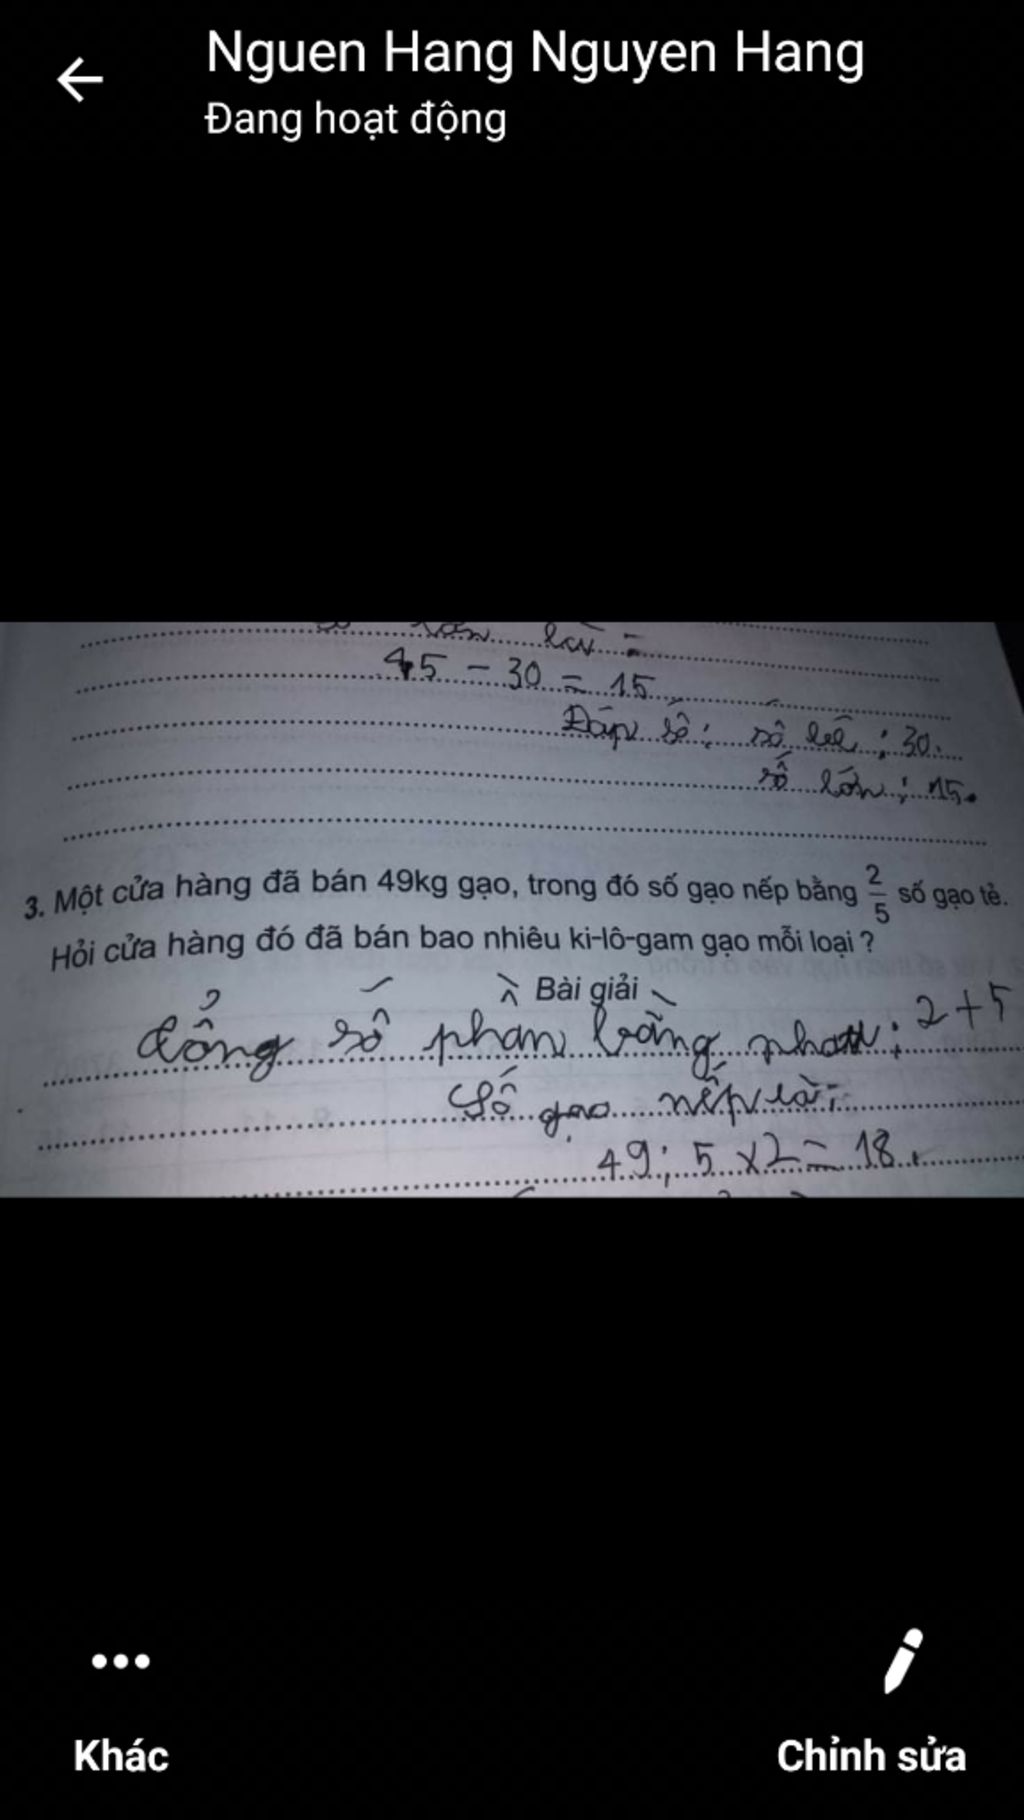 Nguen Hang Nguyen Hang
Đang hoạt động
là =
45 - 30 = 15
Đáp số: số bé: 30.
số lớn: 15.
3. Một cửa hàng đã bán 49kg gạo, trong đó số gạo nếp bằng 2/5 số gạo tẻ.
Hỏi cửa hàng đó đã bán bao nhiêu ki-lô-gam gạo mỗi loại ?
Bài giải
số phần bằng : 2+5
Số gạo nếp là:
49 : 5 x 2 = 18.
Khác
Chỉnh sửa